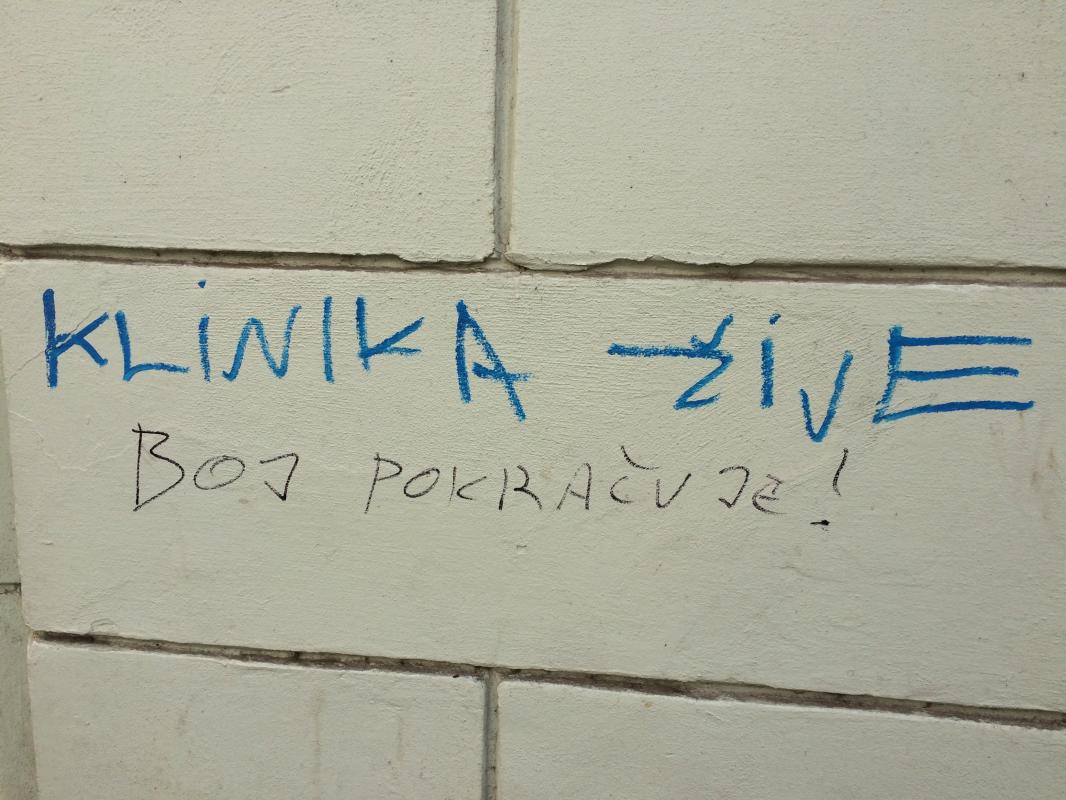 KLiNIKA ŽiJE
BOJ POKRAČUJE!